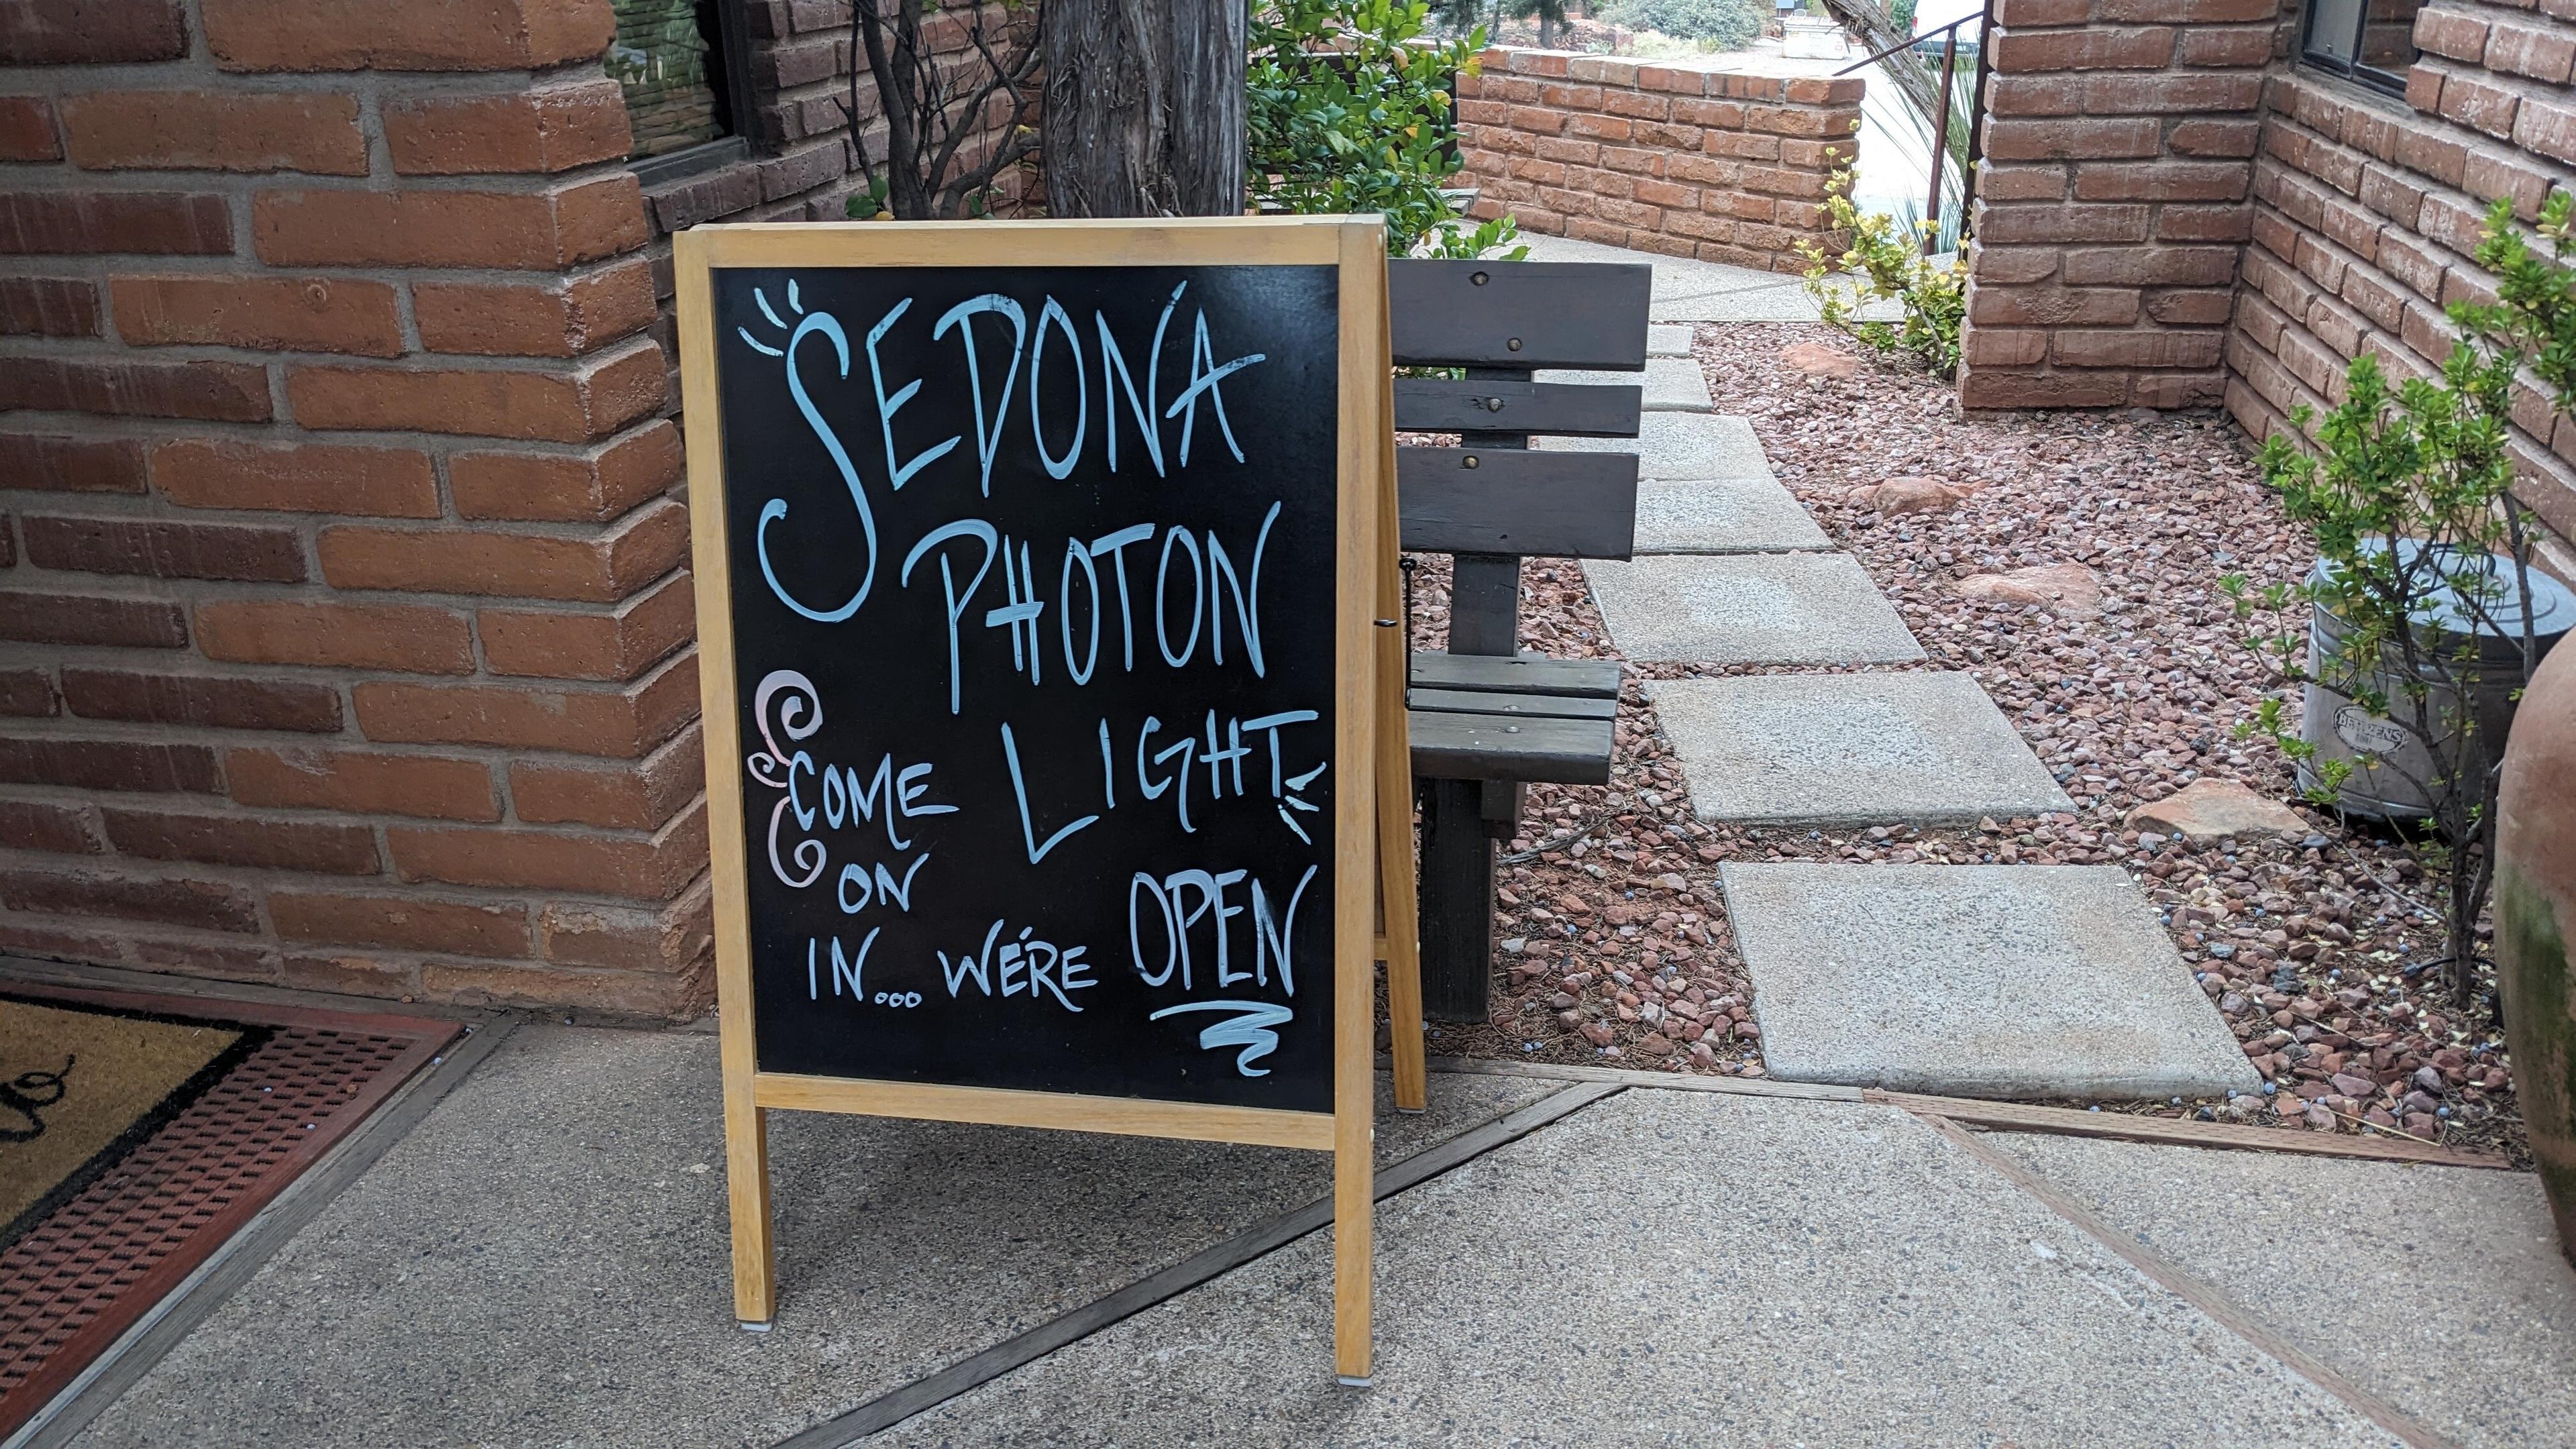 SEDONA
PHOTON
LIGHT
COME
ON
IN... WE'RE OPEN
BEHRENS